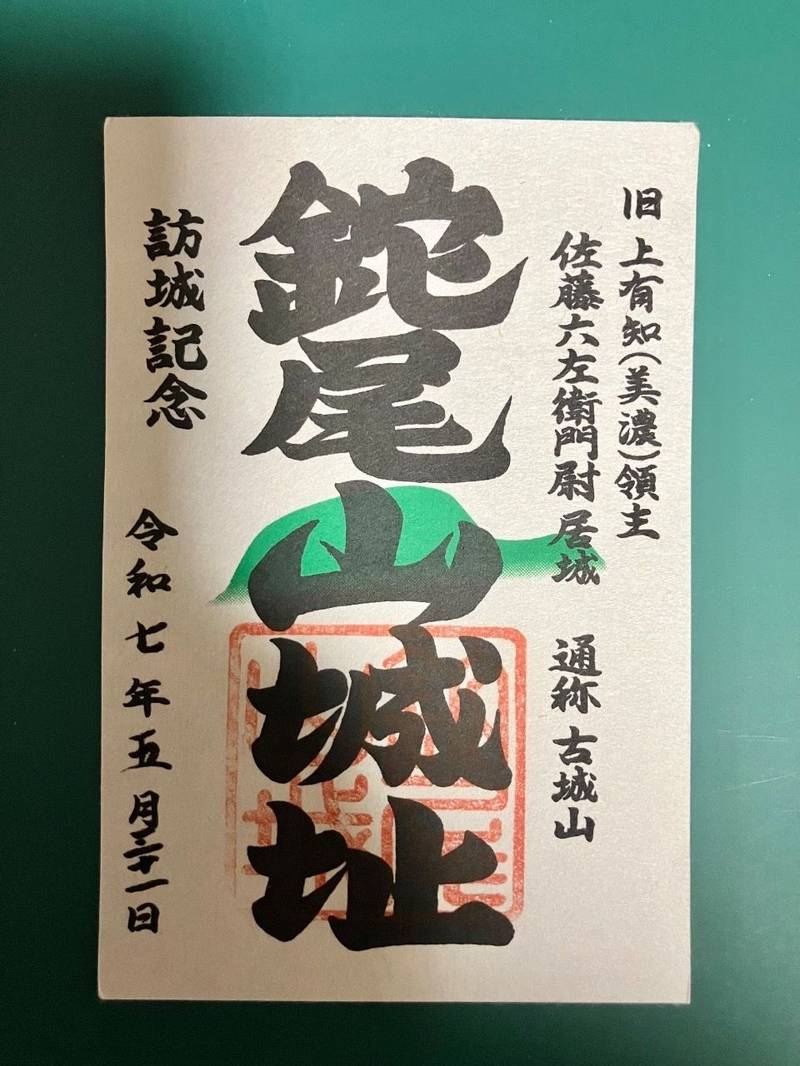 旧上有知（美濃）領主
佐藤六左衛門尉 居城 通称 古城山
鉈尾山城址
訪城記念
令和七年五月三十一日